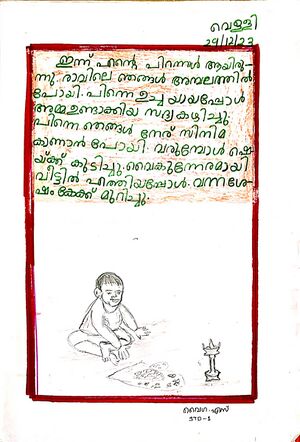 വെള്ളി
29/12/23
ഇന്ന് എന്റെ പിറന്നാൾ ആയിരു-
ന്നു. രാവിലെ ഞങ്ങൾ അമ്പലത്തിൽ
പോയി. പിന്നെ ഉച്ച യായപ്പോൾ
അമ്മ ഉണ്ടാക്കിയ സദ്യ കഴിച്ചു.
പിന്നെ ഞങ്ങൾ നേര് സിനിമ
കാണാൻ പോയി. വരുമ്പോൾ ഷെ-
യ്ക്ക് കുടിച്ചു. വൈകുന്നേരമായി
വീട്ടിൽ എത്തിയപ്പോൾ. വന്നശേ-
ഷം കേക്ക് മുറിച്ചു.
വൈഗ. എസ്
STD-5